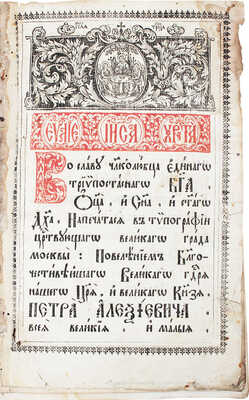 ЕѴ҃ЛІЕ ІИ҃СА ХР҃ТА
Во славу человѣколюбца единагѡ
в трѵпостаснагѡ БГ҃А
Оц҃а, и Сн҃а, и ст҃агѡ
Дх҃а, Напечатася въ тѵпографіи
цр҃твующагѡ великагѡ града
москвы: Повелѣнїемъ Благо-
честивѣйшагѡ Великагѡ гдⷭ҇ря
нашегѡ Цр҃ѧ, и великагѡ Кн҃зѧ.
ПЕТРА АЛЕѮІЕВИЧА.
всеѧ великїѧ, и малыѧ,